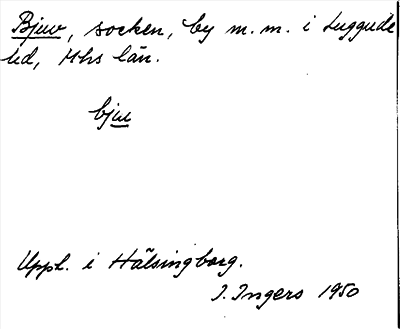 Bjuv, socken, by m.m. i Luggude
hd, Mhs län.
bju
Uppt. i Hälsingborg.
I. Ingers 1950